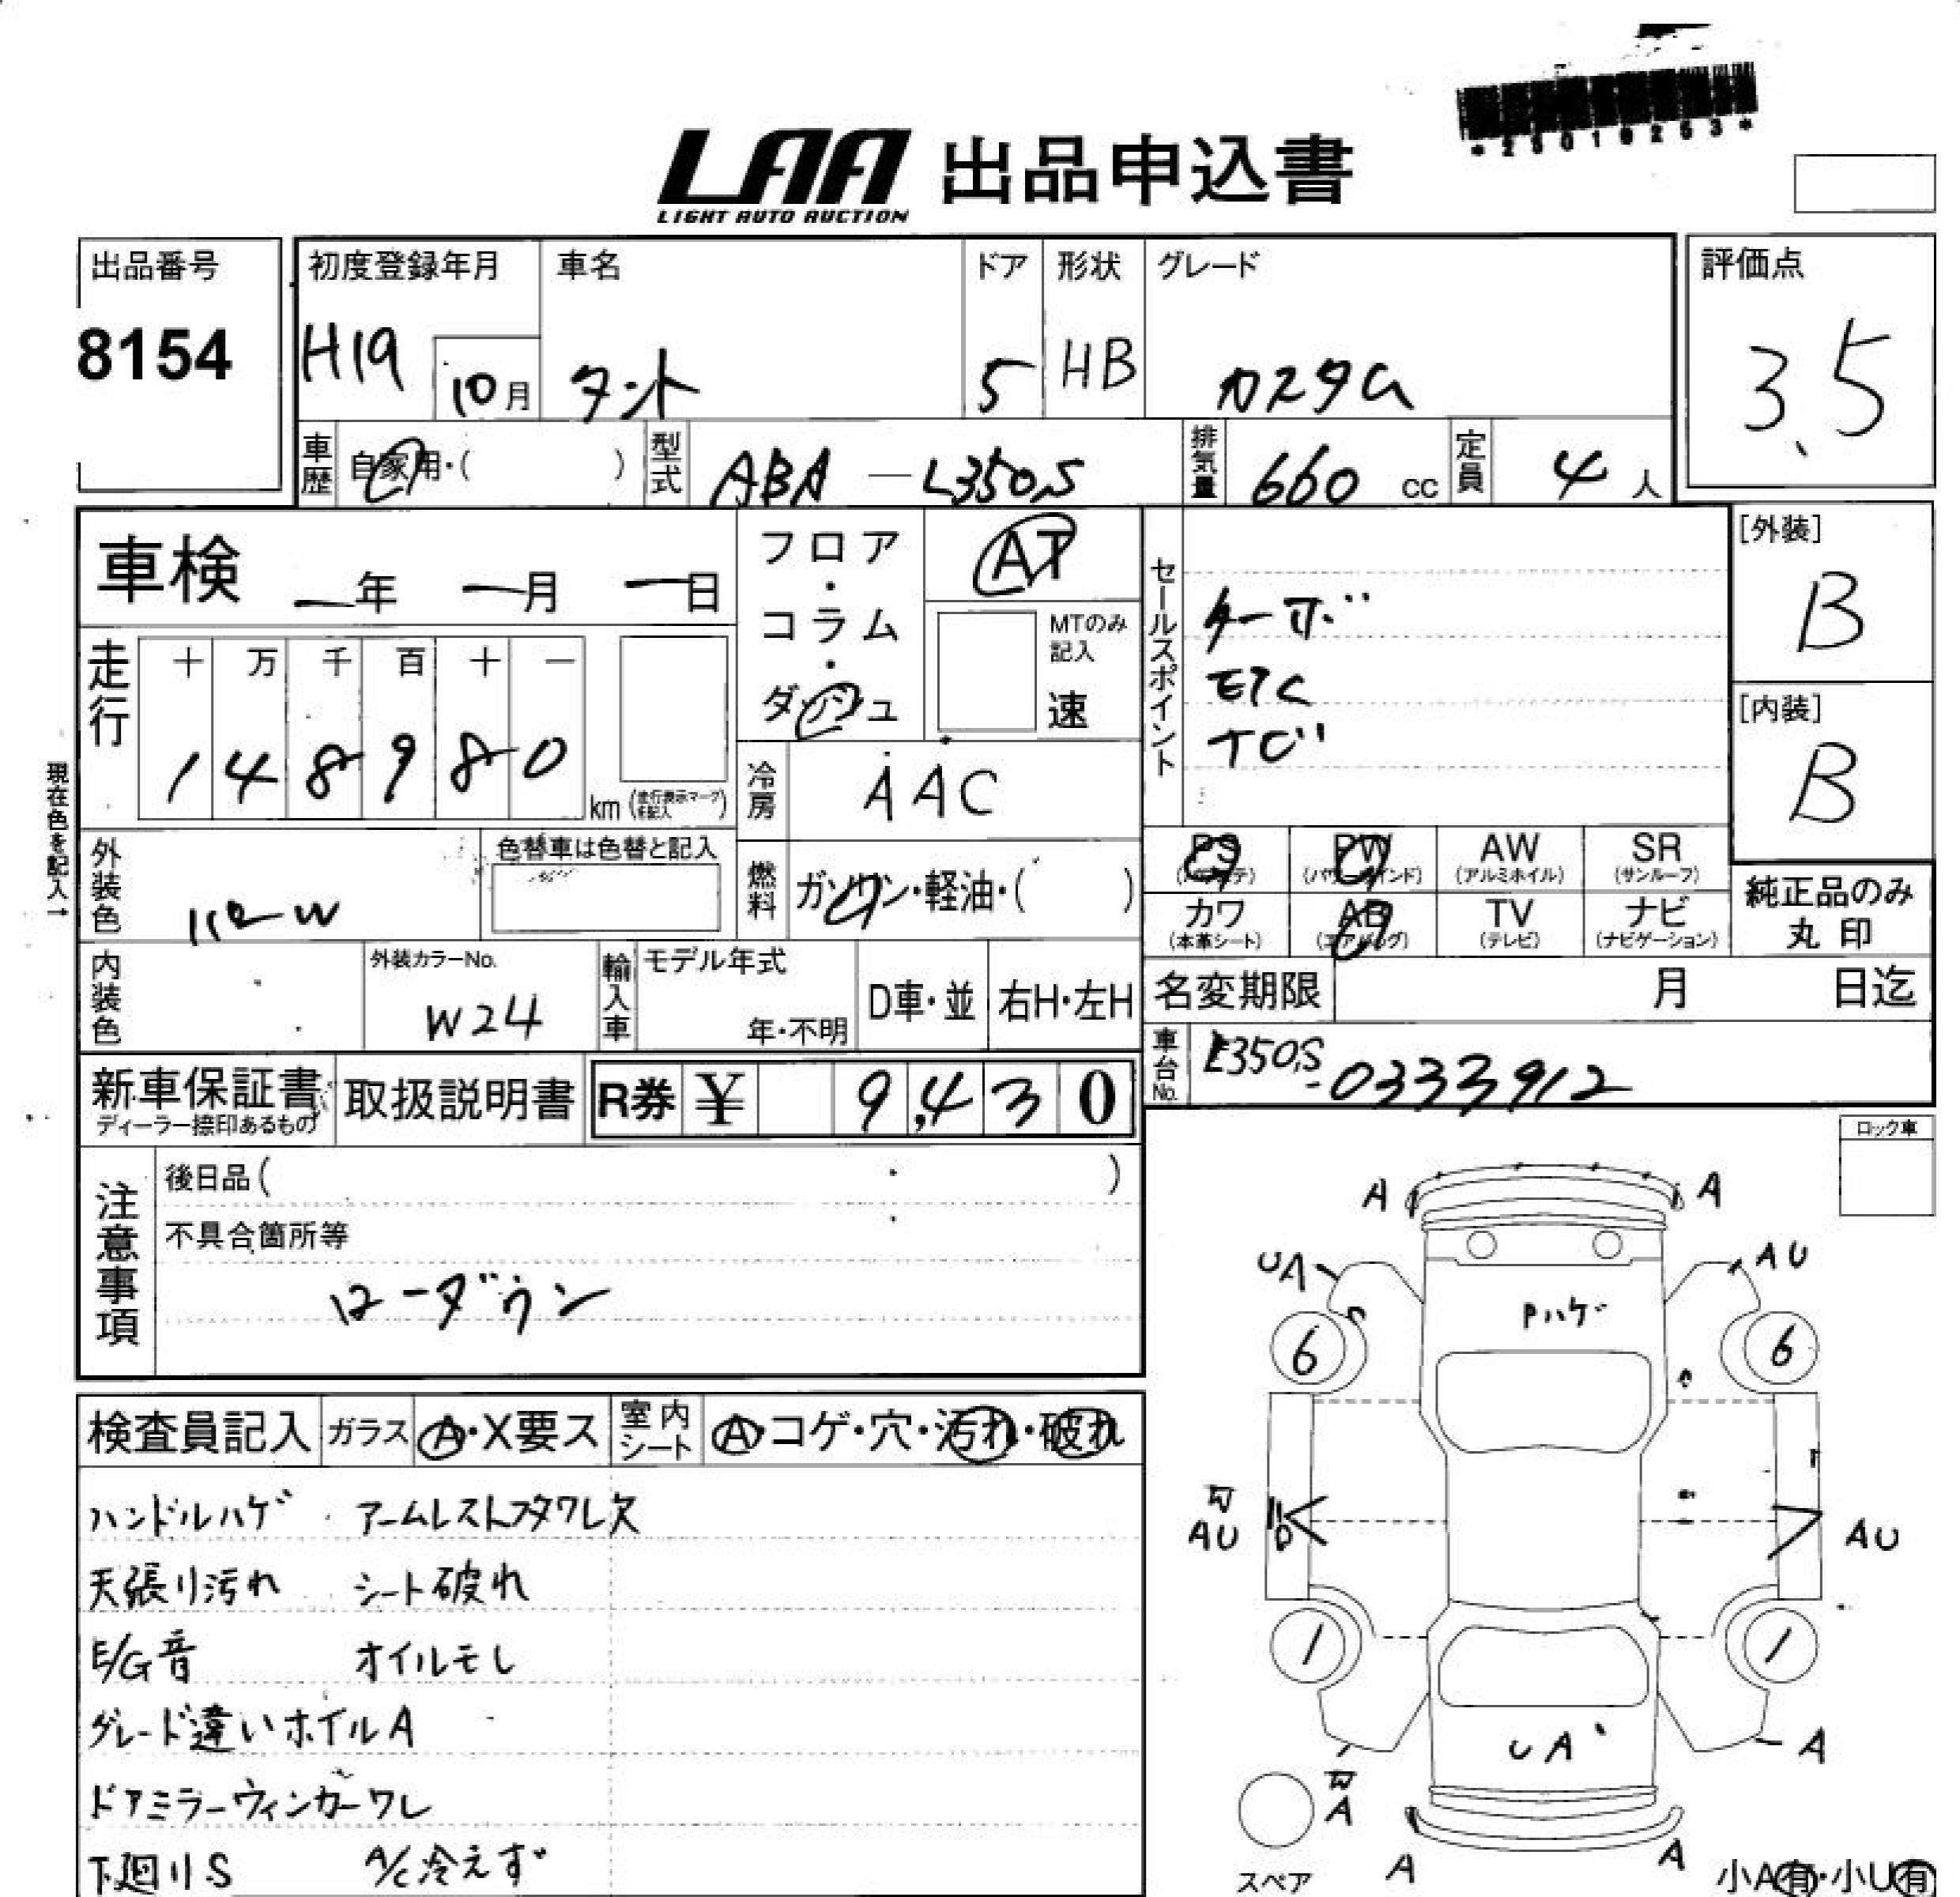 *25010253*
LAA 出品申込書
LIGHT AUTO AUCTION
出品番号
8154
初度登録年月
H19
10月
車名
タント
ドア
5
形状
HB
グレード
カスタム
評価点
3.5
車歴
自家用・( )
型式
ABA-L350S
排気量
660 cc
定員
4人
車検
ー年 ー月 ー日
フロア・コラム・ダッシュ
AT
MTのみ記入
速
セールスポイント
ターボ
ETC
ナビ
[外装]
B
[内装]
B
走行
十 万 千 百 十 一
1 4 8 9 8 0
km (走行表示マークを記入)
冷房
AAC
現在色を記入→
外装色
パールW
色替車は色替と記入
燃料
ガソリン・軽油・( )
PS
(パワステ)
PW
(パワーウインド)
AW
(アルミホイル)
SR
(サンルーフ)
カワ
(本革シート)
AB
(エアバッグ)
TV
(テレビ)
ナビ
(ナビゲーション)
純正品のみ
丸印
内装色
外装カラーNo.
W24
輸入車
モデル年式
年・不明
D車・並
右H・左H
名変期限
月 日迄
車台No.
L350S-0333912
新車保証書
ディーラー捺印あるもの
取扱説明書
R券 ¥ 9,430
ロック車
注意事項
後日品( )
不具合箇所等
ローダウン
検査員記入
ガラス
A・X要ス
室内シート
A・コゲ・穴・汚れ・破れ
ハンドルハゲ アームレストフタワレ欠
天張り汚れ シート破れ
E/G音 オイルモレ
グレード違いホイルA
ドアミラーウィンカーワレ
下廻りS A/C冷えず
A A
UA AU
Pハゲ
6 6
AU AU
1 1
UA
A
A
スペア
A A
小A有・小U有